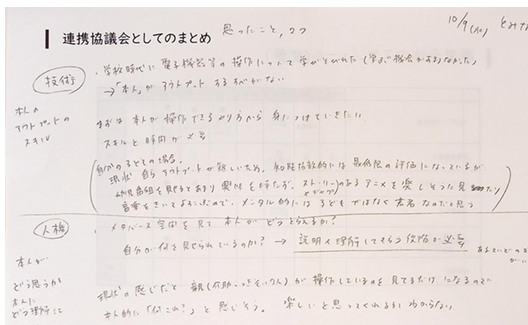 連携協議会としてのまとめ 思ったこと,
10/9(火)
技術
・学校時代に電子機器等の操作について学びとれた(学ぶ機会があまりなかった)
→「本人」がアウトプットするすべがない
本人の
アウトプットの
スキル
まずは本人が操作できるやり方から身につけていきたい。
スキルと時間が必要
自分の子どもの場合、
現状自らアウトプットが難しいため、知能指数的には最低限の評価になっているが
幼児番組を見せてあまり興味を持たず、ストーリーのあるアニメを楽しそうに見たり
音楽をきいてるので、メンタル的には子どもではなく若者なのだと思う
人権
・メタバース空間を見て本人がどうとらえるか?
自分が何を見せられているのか? → 説明し理解してもらう役割が必要
本人が
どう思うか
本人に
どう理解して
現状の感じだと親(介助・つきそい人)が操作しているのを見てるだけになるので
本人的に「何これ?」と感じそう。楽しいと思ってくれるかわからない。